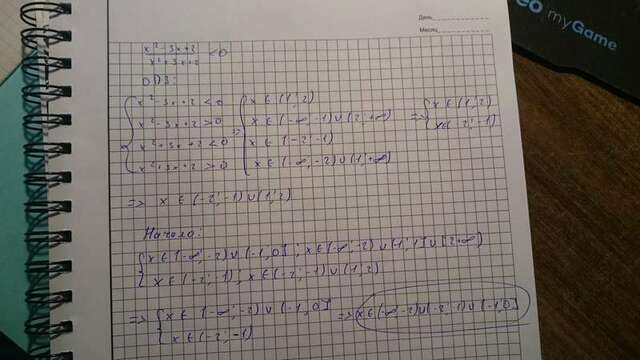 День
Месяц
eo myGame
x² - 3x + 2 / x² + 3x + 2 < 0
ОДЗ:
{ x² - 3x + 2 < 0 { x ∈ (1; 2)
x² - 3x + 2 > 0 x ∈ (-∞; -1) ∪ (2; +∞) => { x ∈ (1; 2)
x² + 3x + 2 < 0 => x ∈ (-2; -1) x ∈ (-2; -1)
x² + 3x + 2 > 0 x ∈ (-∞; -2) ∪ (1; +∞)
=> x ∈ (-2; -1) ∪ (1; 2)
Начало:
{ x ∈ (-∞; -2) ∪ (-1, 0] ; x ∈ (-∞; -2) ∪ (-1; 1] ∪ [2; +∞)
x ∈ (-2; -1) ; x ∈ (-2; -1) ∪ (1, 2)
=> { x ∈ (-∞; -2) ∪ (-1, 0] => x ∈ (-∞; -2) ∪ (-2; -1) ∪ (-1, 0]
x ∈ (-2; -1)